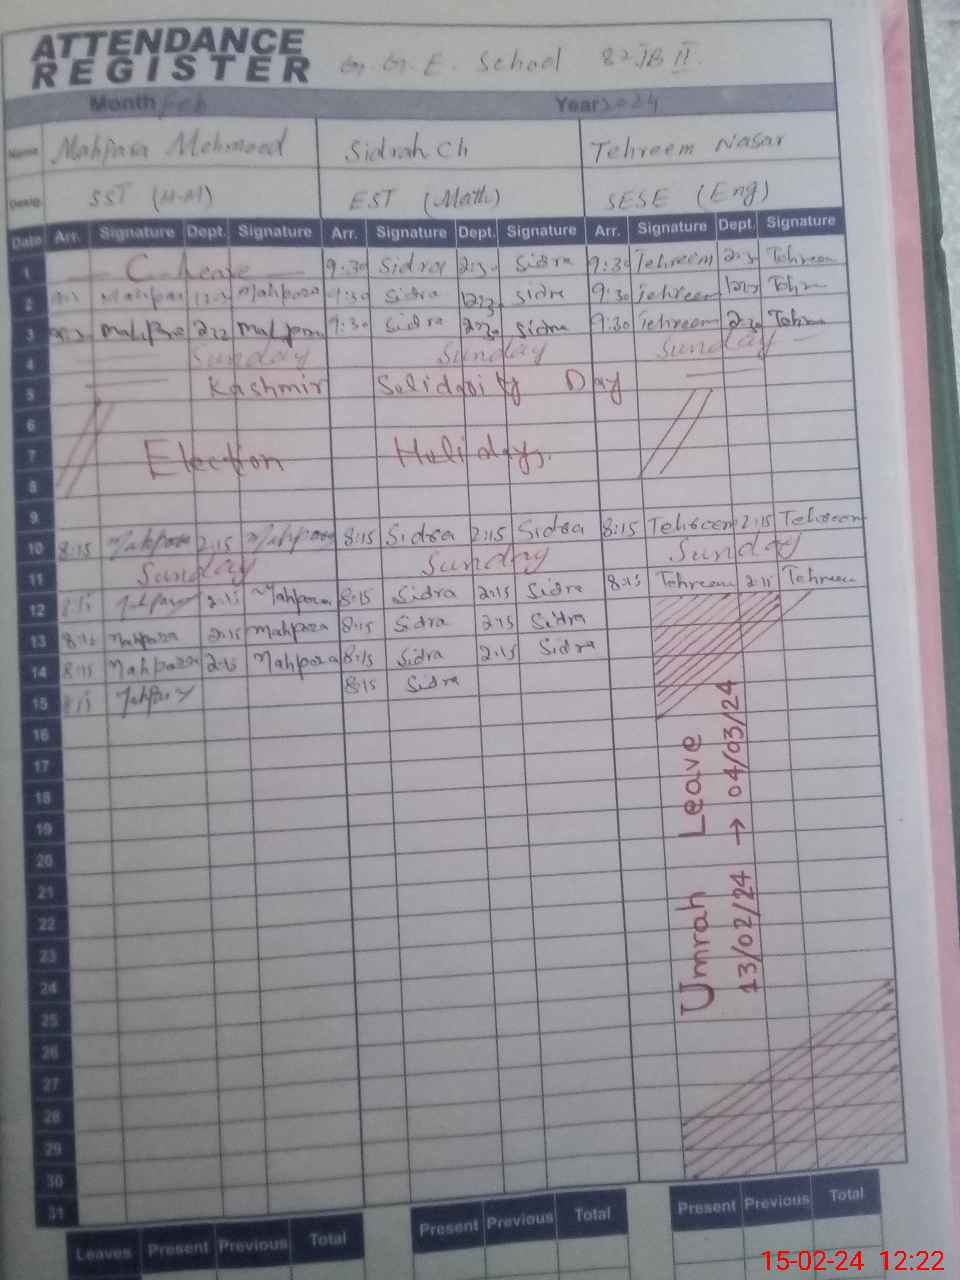 ATTENDANCE
REGISTER G.G.E. School 82 JB II
Month Feb Year 2024
Name Mahpara Mehmood Sidrah Ch Tehreem Nasar
Desig. SST (M-M) EST (Math) SESE (Eng)
Date Arr. Signature Dept. Signature Arr. Signature Dept. Signature Arr. Signature Dept. Signature
1 C. Leave 9:30 Sidra 2:30 Sidra 9:30 Tehreem 2:30 Tehreem
2 Mahpara Mahpara 9:30 Sidra 12:30 Sidra 9:30 Tehreem 12:30
3 Mahpara Mahpara 9:30 Sidra 2:30 Sidra 9:30 Tehreem 2:30
4 Sunday Sunday Sunday
5 Kashmir Solidarity Day
6
7 Election Holidays.
8
9
10 8:15 Mahpara 2:15 Mahpara 8:15 Sidra 2:15 Sidra 8:15 Tehreem 2:15 Tehreem
11 Sunday Sunday Sunday
12 8:15 2:15 Mahpara 8:15 Sidra 2:15 Sidra 8:15 Tehreem 2:15 Tehreem
13 8:15 Mahpara 2:15 Mahpara 8:15 Sidra 2:15 Sidra
14 8:15 Mahpara 2:15 Mahpara 8:15 Sidra 2:15 Sidra
15 8:15 8:15 Sidra
16
17
18
19
20
21
22
23
24
25
26
27
28
29
30
31
Umrah Leave
13/02/24 → 04/03/24
Leaves Present Previous Total Present Previous Total Present Previous Total
15-02-24 12:22